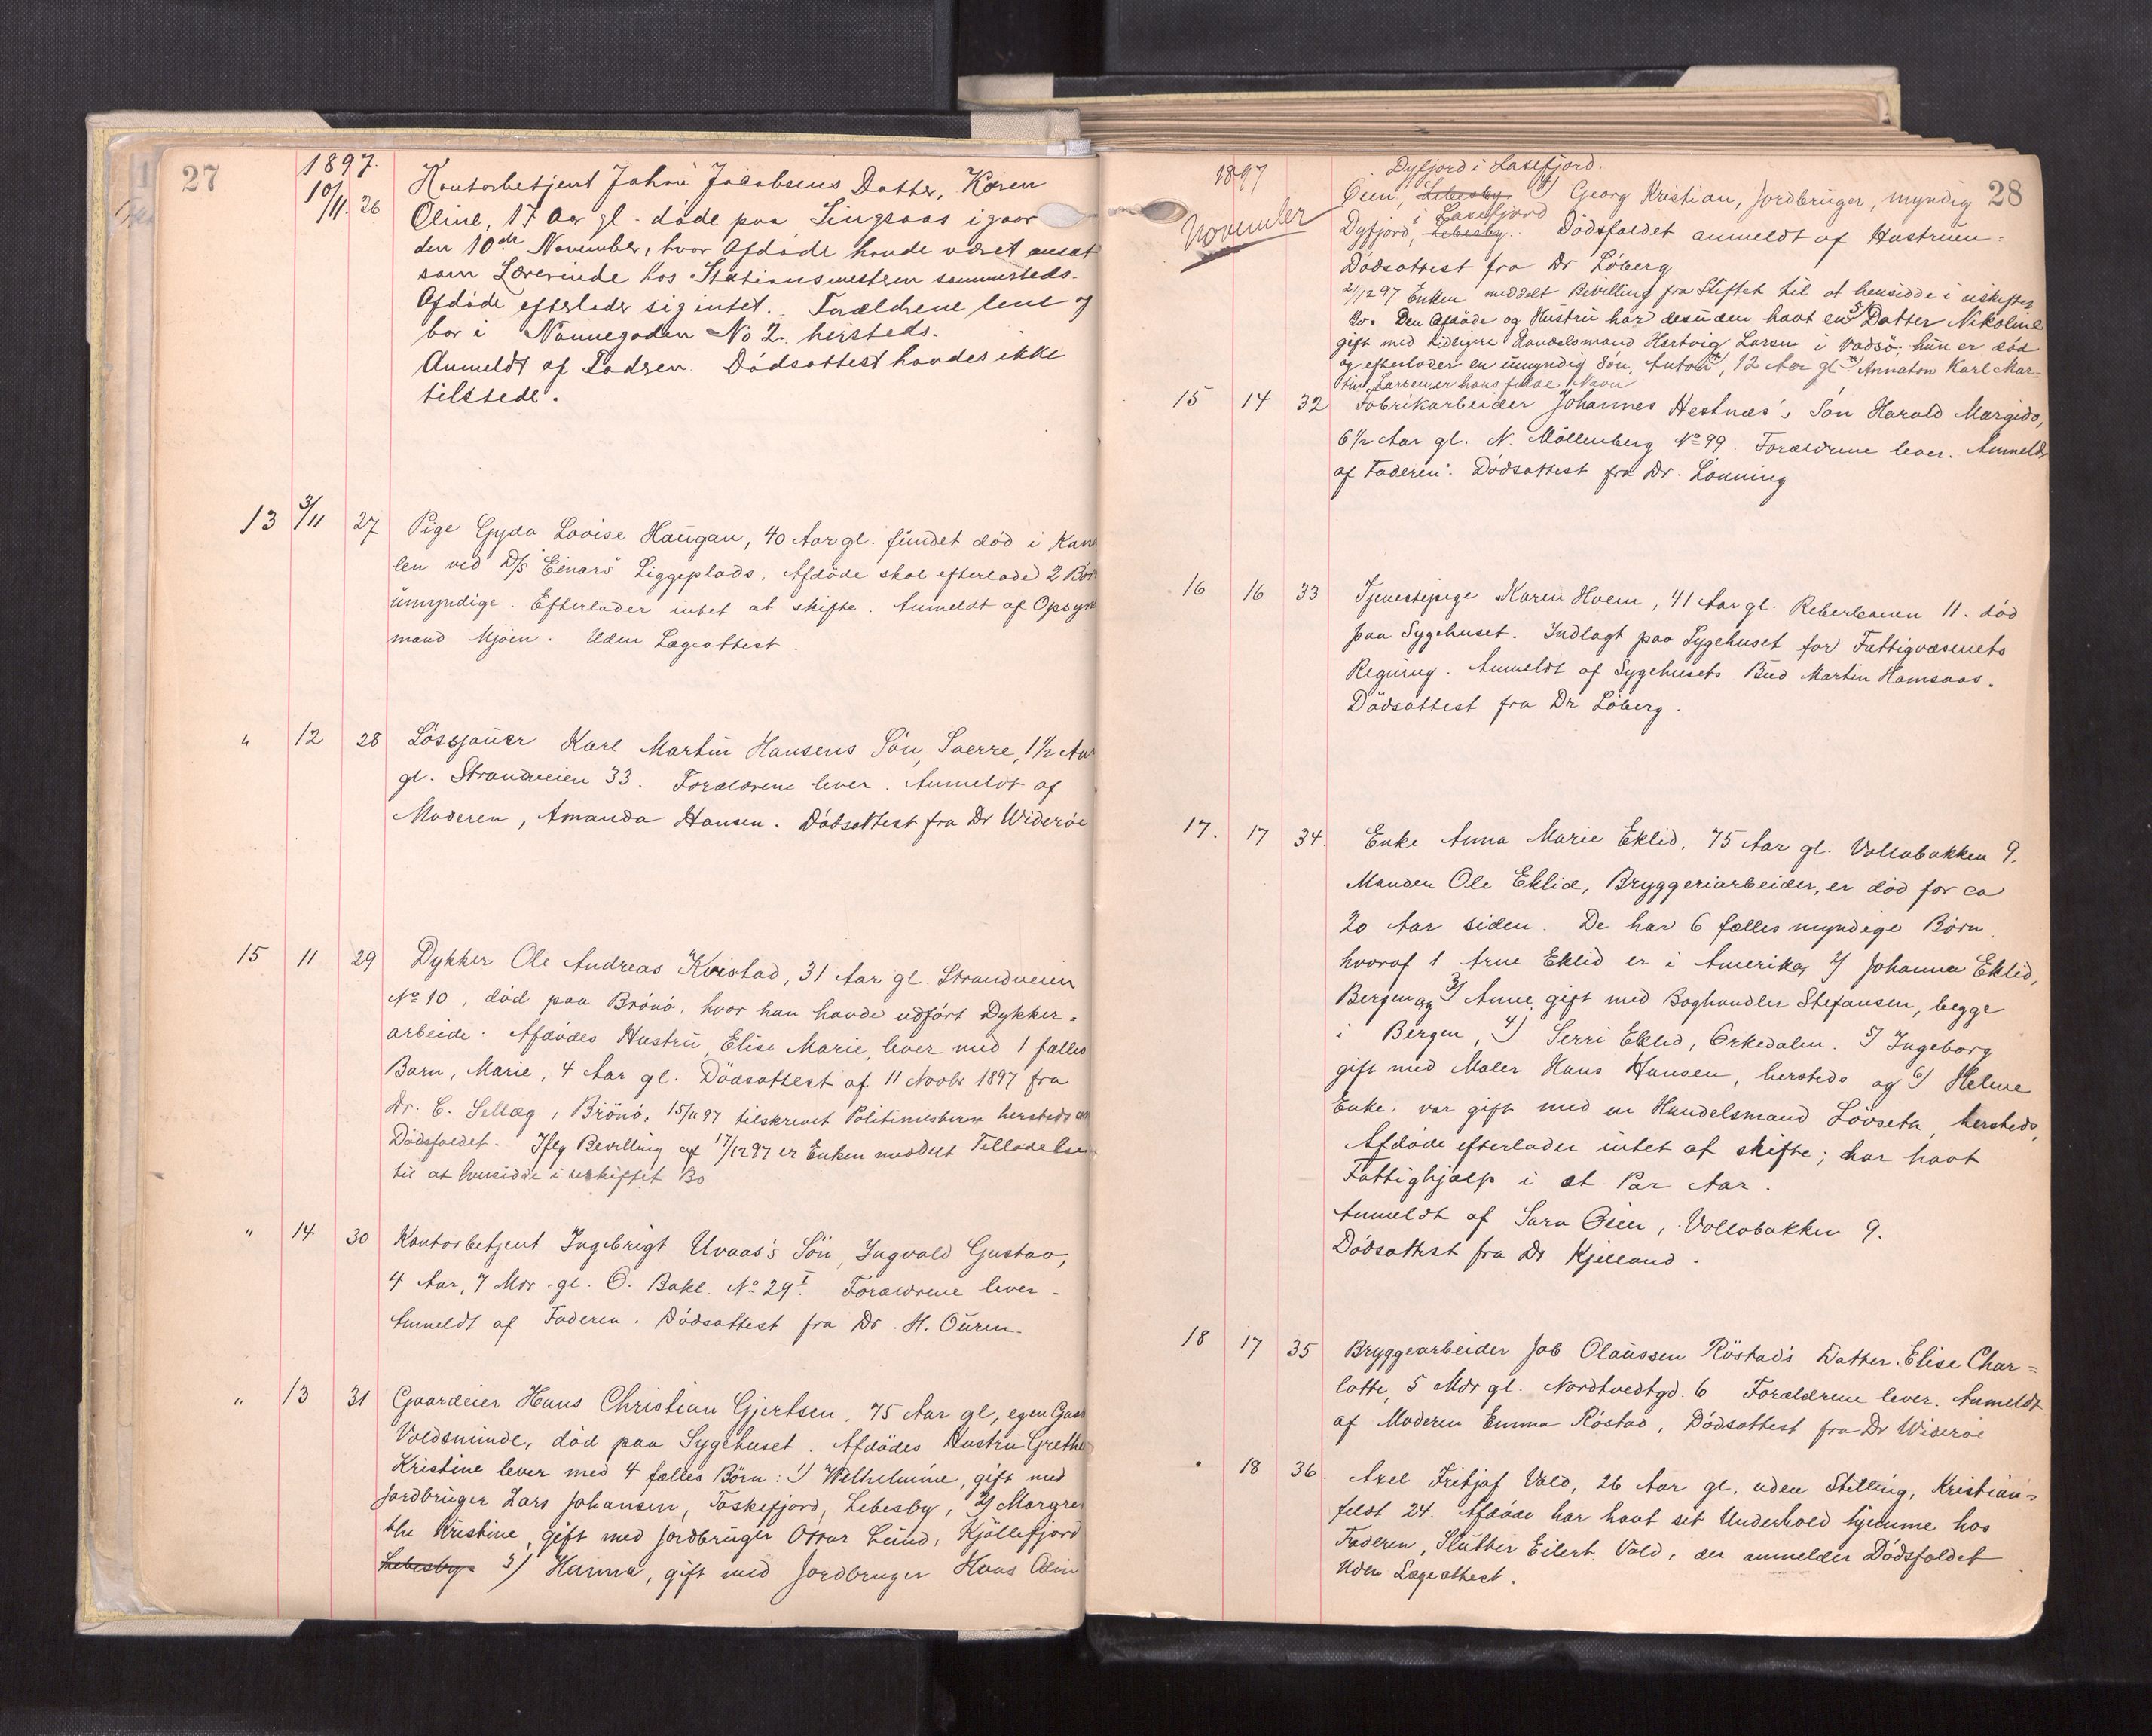 27
1897.
10/11. 26 Kontorbetjent Johan Jacobsens Datter, Karen
Oline, 17 Aar gl. døde paa Singsaas igaar
den 10de November, hvor Afdøde havde været ansat
som Lærerinde hos Stationsmesteren sammesteds.
Afdøde efterlader sig intet. Forældrene leve og
bor i Nonnegaden No 2. hersteds.
Anmeldt af Fadren. Dödsattest havdes ikke
tilstede.
13 3/11 27 Pige Gyda Lovise Haugan, 40 Aar gl. fundet död i Kana
len ved D/S "Einars" Liggeplads. Afdöde skal efterlade 2 Börn
umyndige. Efterlader intet at skifte. Anmeldt af Opsyns
mand Mjöen. Uden Lægeattest.
" 12 28 Løssjauer Karl Martin Hansens Sön, Sverre, 1 1/2 Aar
gl. Strandveien 33. Forældrene lever. Anmeldt af
Moderen, Amanda Hansen. Dödsattest fra Dr Widerøe
15 11 29 Dykker Ole Andreas Kvistad, 31 Aar gl. Strandveien
No 10, död paa Brönö, hvor han havde udfört Dykker=
arbeide. Afdödes Hustru, Elise Marie, lever med 1 fælles
Barn, Marie, 4 Aar gl. Dödsattest af 11 Novbr 1897 fra
Dr. C. Sellæg, Brönö. 15/11 97 tilskrevet Politimesteren hersteds om
Dödsfaldet. Iflg Bevilling af 17/12 97 er Enken meddelt Tilladelse
til at hensidde i uskiftet Bo
" 14 30 Kontorbetjent Ingebrigt Uvaas's Sön, Ingvald Gustav,
4 Aar, 7 Mdr. gl. Ö. Bakl. No 29 I. Forældrene lever.
Anmeldt af Faderen. Dödsattest fra Dr. H. Ouren.
" 13 31 Gaardeier Hans Christian Gjertsen, 75 Aar gl, egen Gaard
Voldsminde, död paa Sygehuset. Afdödes Hustru Grethe
Kristine lever med 4 fælles Börn: 1) Wilhelmine, gift med
Jordbruger Lars Johansen, Toskefjord, Lebesby, 2) Margre
the Kristine, gift med Jordbruger Ottar Lund, Kjöllefjord
Lebesby. 3) Hanna, gift med Jordbruger Hans Odin
28
1897
November
Dyfjord i Laxefjord.
Oien, Lebesby 4) Georg Kristian, Jordbruger, myndig
i Laxefjord
Dyfjord, Lebesby. Dödsfaldet anmeldt af Hustruen.
Dödsattest fra Dr Löberg
21/12 97 Enken meddelt Bevilling fra Stiftet til at hensidde i uskiftet
Bo. Den Afdöde og Hustru har desuden havt en 5) Datter Nikoline
gift med tidligere Handelsmand Hartvig Larsen i Vadsö; hun er död
og efterlader en umyndig Sön, Anton, 12 Aar gl. Annaton Karl Mar=
tin Larsen er hans fulde Navn
15 14 32 Fabrikarbeider Johannes Hestnæs's Sön Harald Margido,
6 1/2 Aar gl. N. Möllenberg No 99. Forældrene lever. Anmeldt
af Faderen. Dödsattest fra Dr. Lönning
16 16 33 Tjenestepige Karen Holm, 41 Aar gl. Reberbanen 11. död
paa Sygehuset. Indlagt paa Sygehuset for Fattigvæsenets
Regning. Anmeldt af Sygehusets Bud Martin Hamsaas.
Dödsattest fra Dr Löberg.
17. 17 34. Enke Anna Marie Eklid, 75 Aar gl. Vollabakken 9.
Manden Ole Eklid, Bryggeriarbeider, er död for ca
20 Aar siden. De har 6 fælles myndige Börn,
hvoraf 1 Arne Eklid er i Amerika, 2) Johanna Eklid,
Bergen og 3) Anne gift med Boghandler Stefansen, begge
i Bergen, 4) Serri Eklid, Orkedalen. 5) Ingeborg
gift med Maler Hans Hansen, hersteds og 6) Helene
Enke, var gift med en Handelsmand Lövseth, hersteds,
Afdöde efterlader intet at skifte; har havt
Fattighjælp i et Par Aar.
Anmeldt af Sara Öien, Vollabakken 9.
Dödsattest fra Dr Kjelland.
18 17 35 Bryggearbeider Job Olaussen Röstad's Datter Elise Char=
lotte, 5 Mdr gl. Nordtvedtgd. 6 Forældrene lever. Anmeldt
af Moderen Emma Röstad, Dödsattest fra Dr Widerøe
" 18 36. Axel Fritjof Vold, 26 Aar gl. uden Stilling, Kristian=
feldt 24. Afdöde har havt sit Underhold hjemme hos
Faderen, Slutter Eilert Vold, der anmelder Dödsfaldet
Uden Lægeattest.